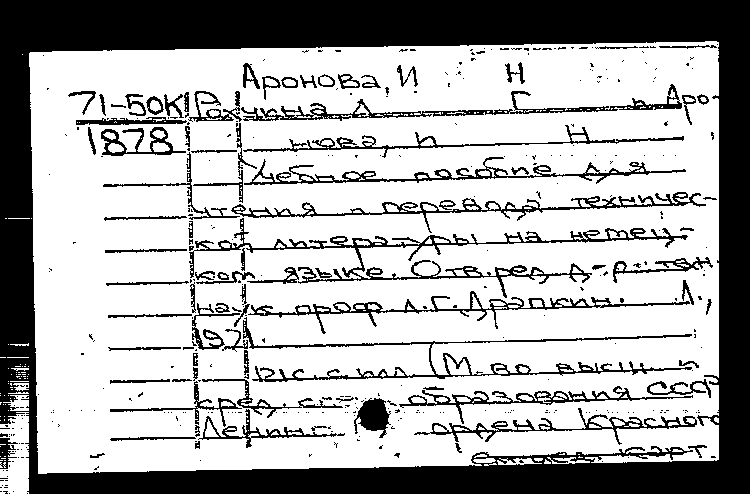 Аронова, И Н
71-50К Рахчина Л Г и Аро-
1878 нова, И Н
Учебное пособие для
чтения и перевода техничес-
кой литературы на немец-
ком языке. Отв. ред. д-р техн.
наук, проф Л.Г. Драпкин. Л.,
1971.
121 с. с илл. (М-во высш и
сред. образования СССР
Ленинг ордена Красного
см. след. карт.